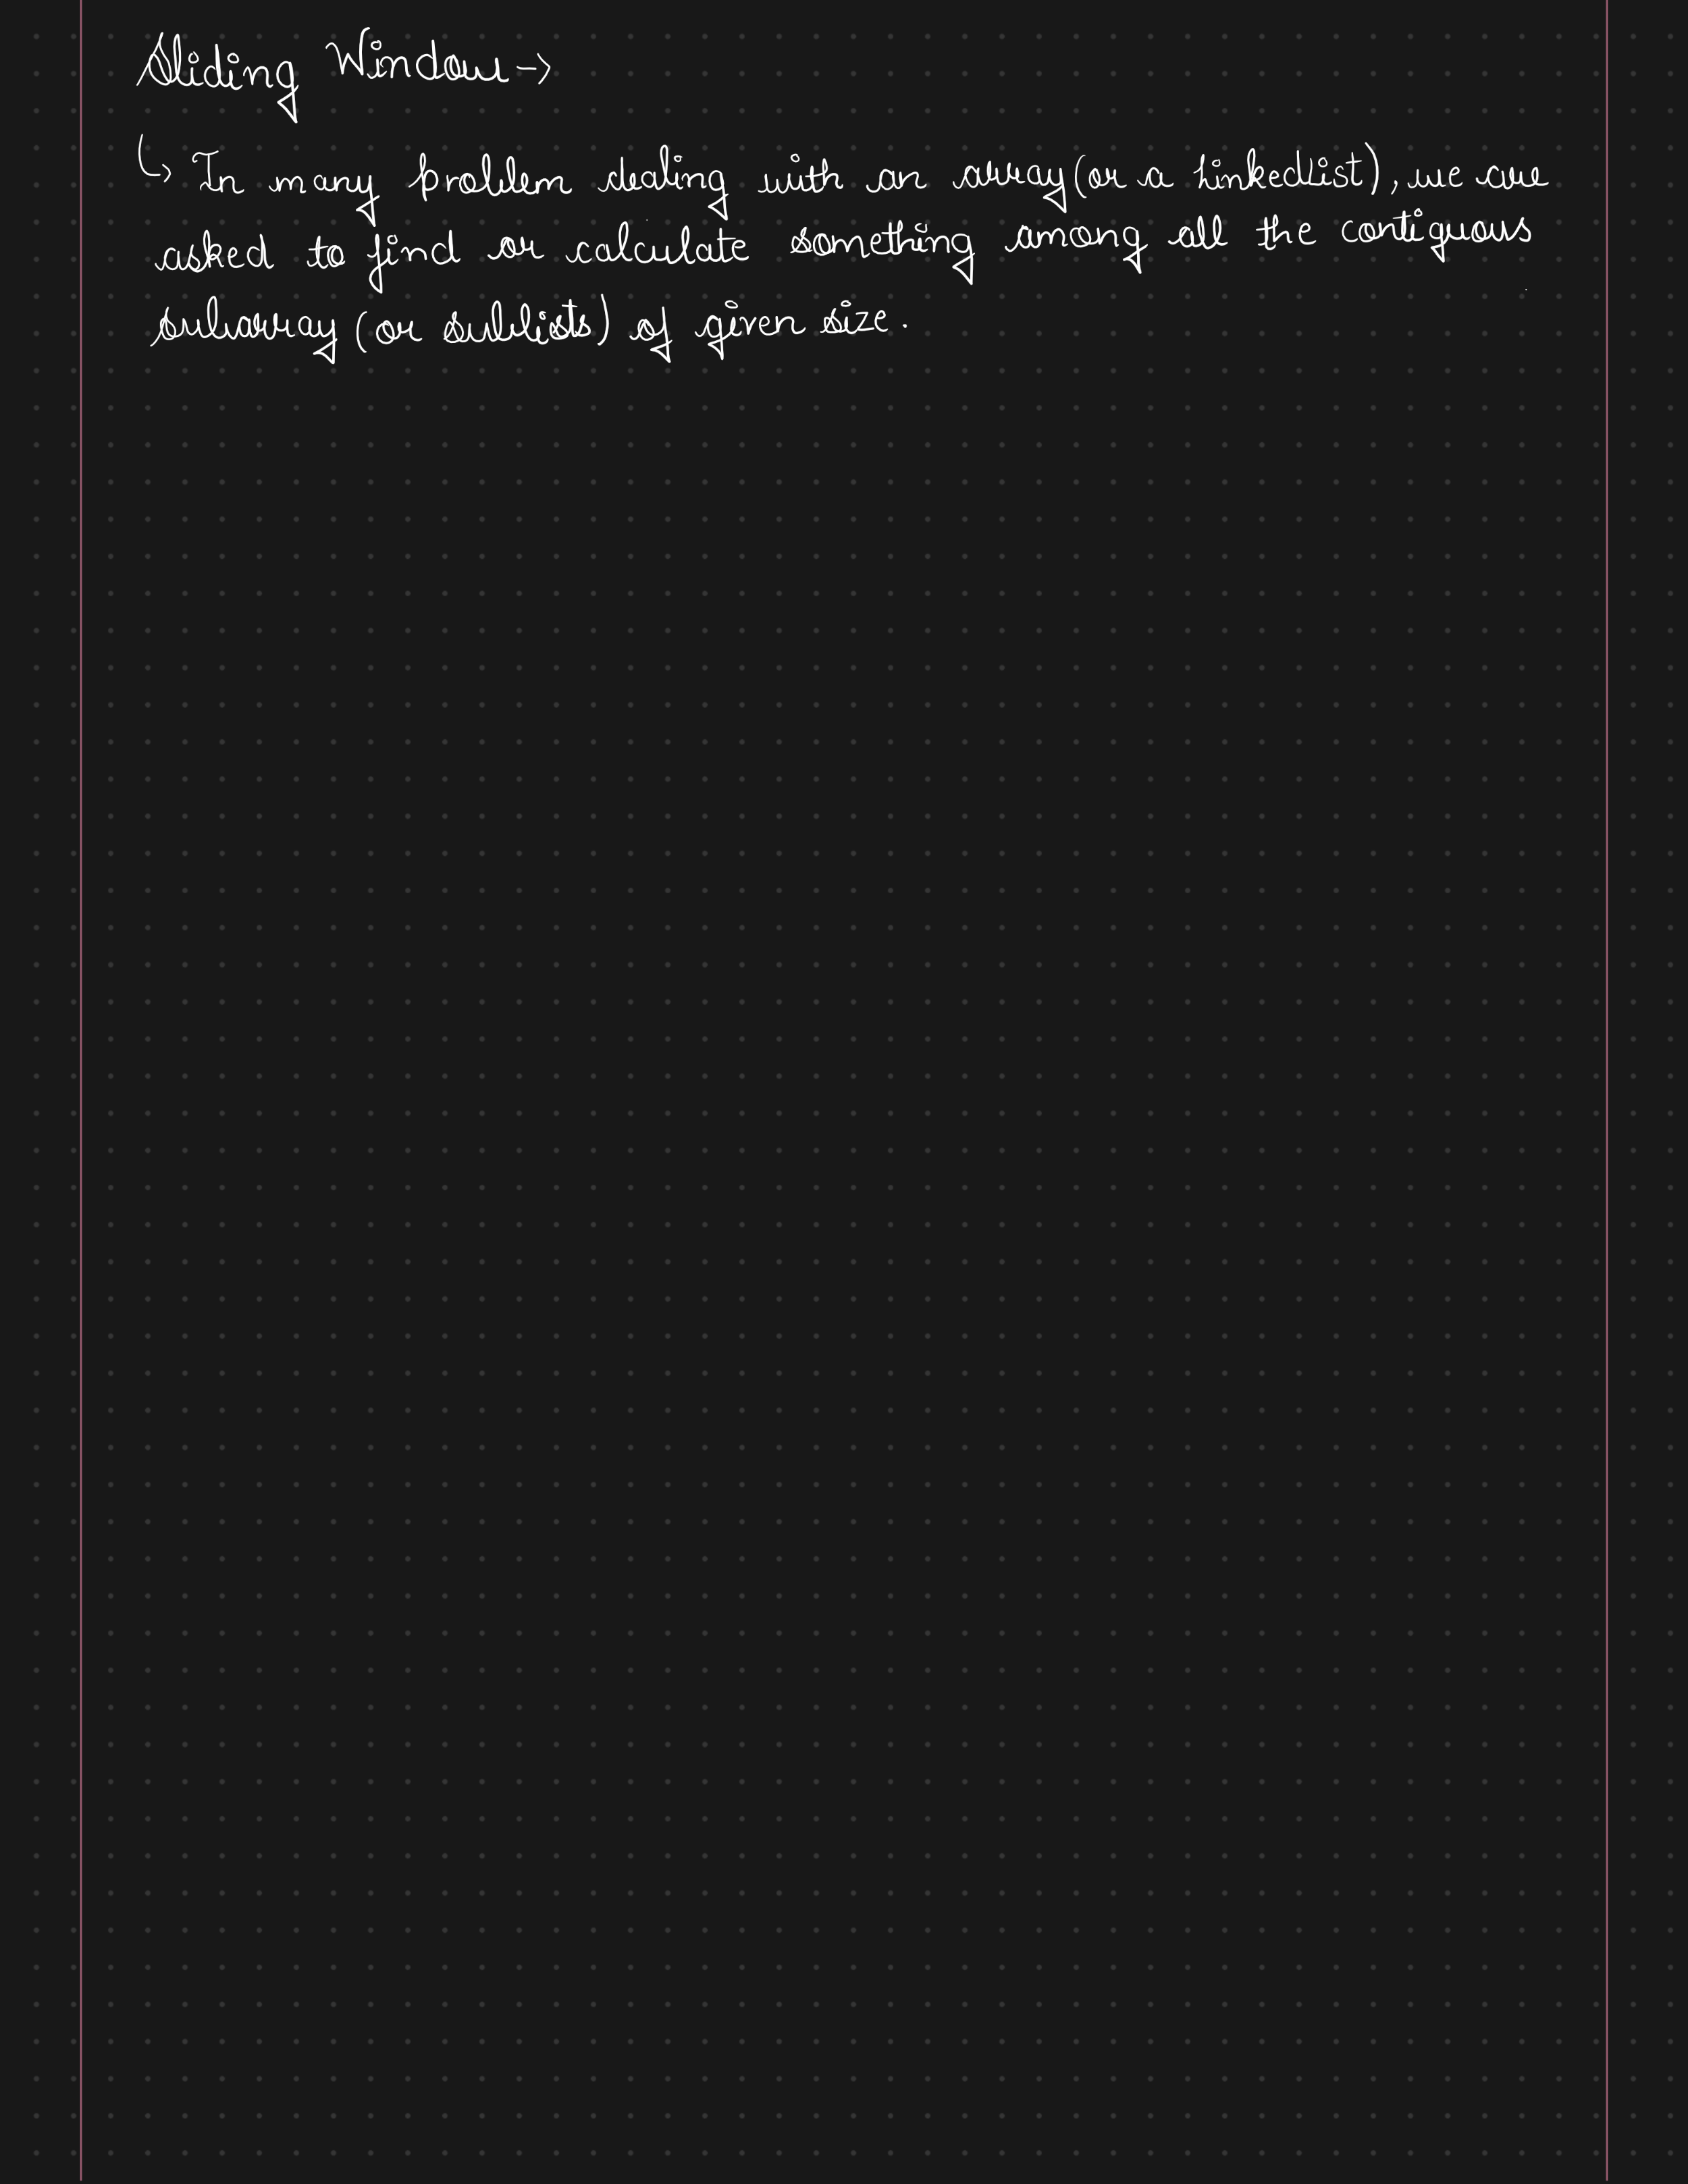 Sliding Window →
↳ In many problem dealing with an array (or a LinkedList), we are
asked to find or calculate something among all the contiguous
subarray (or sublists) of given size.